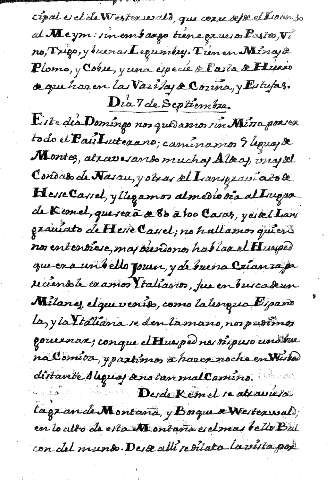 cipal es el de Westerwald, que corre desde el
al Meyn: sin embargo tiene grueso Pasto, Vi
no, Trigo, y buenas Legumbres. Tienen Minas de
Plomo, y Cobre, y una especie de Pasta de Hierro
de que hacen las Varillas de Cozina, y Estufas.
Dia 7 de Septiembre
Este dia Domingo nos quedamos sin Misa, por ser
todo el Pais Luterano; caminamos 7 leguas de
Montes, atravesando muchas Aldeas, unas del
Condado de Nasau, y otras del Lansgraviato de
Hese Cassel, y llegamos al medio dia al Lugar
de Kemel, que será de 80 a 100 Casas, y es del Lans
graviato de Hese Cassel; no hallamos quien
nos entendiese, mas viendonos hablar el Huesped
que era un bello Joven, y de buena Crianza, pa
reciendole eramos Ytalianos, fue en busca de un
Milanes, el que venido, como la lengua Españo
la, y la Ytaliana se den la mano, nos pudimos
governar; conque el Huesped nos dispuso una bue
na Comida, y partimos a hacer noche en
distante 3 leguas de no tan mal Camino.
Desde Kemel se atraviesa
la gran de Montaña, y Bosque de Westerwal;
en lo alto de esta Montaña es el mas bello Bal
con del mundo. Desde alli se dilata la vista por